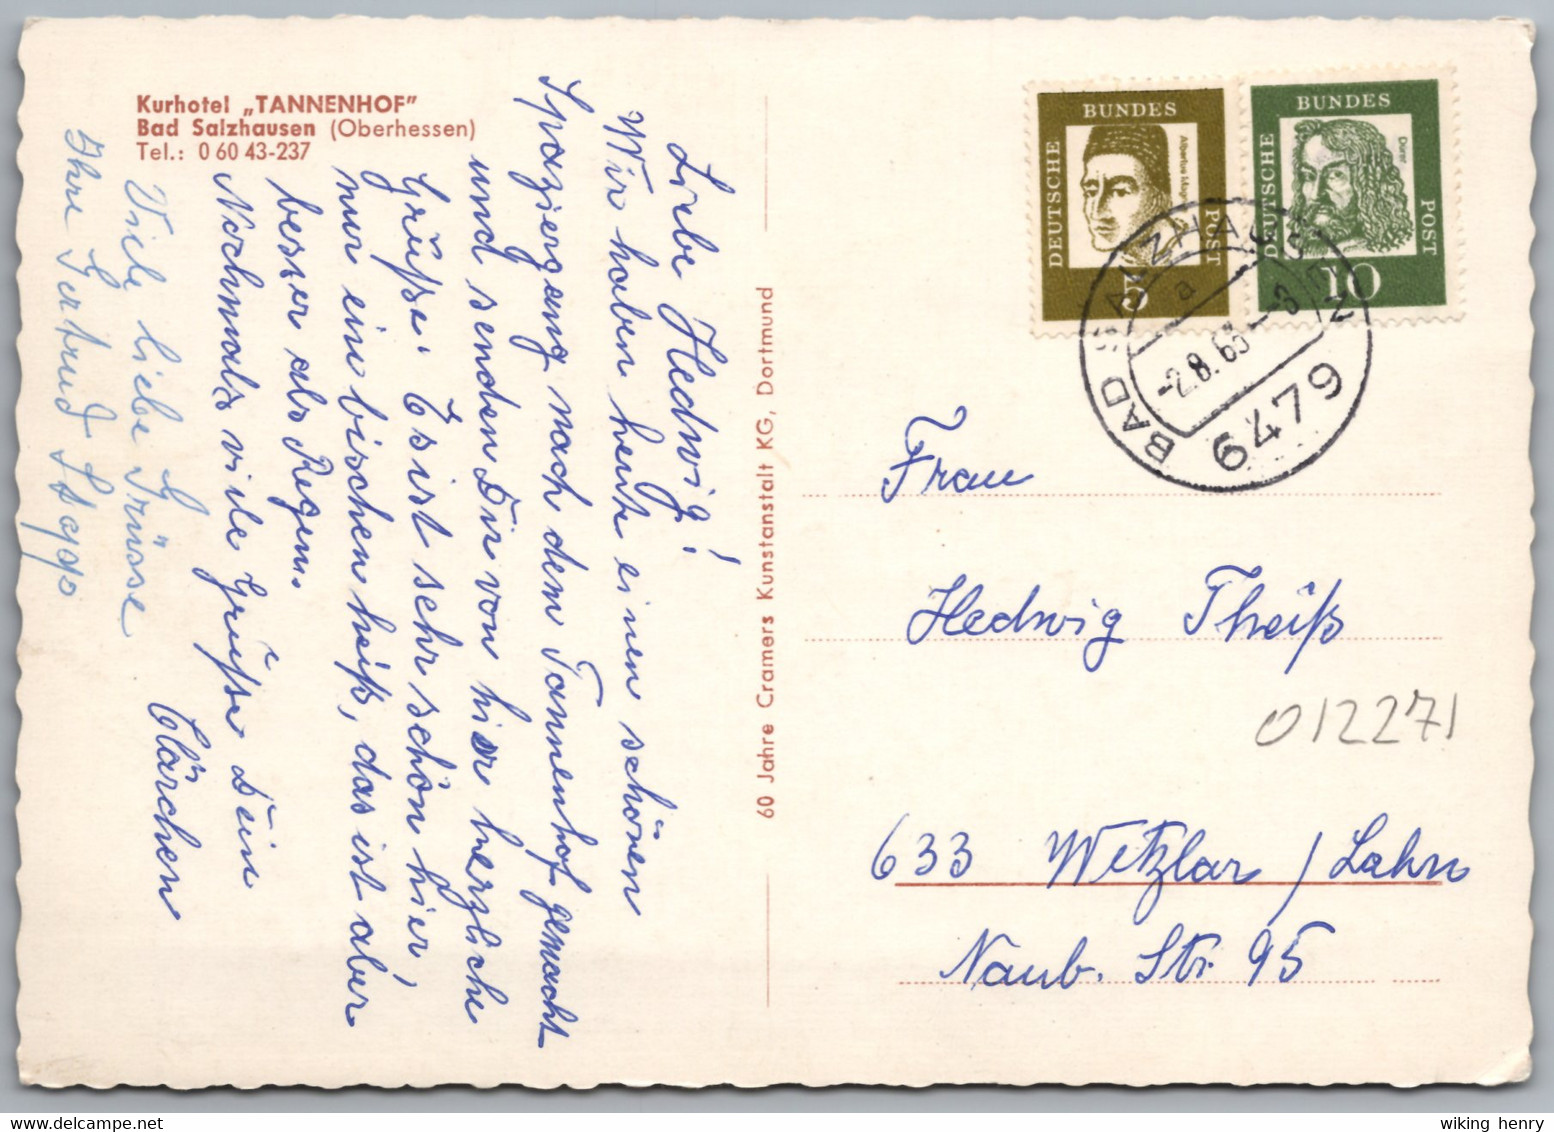 Kurhotel „TANNENHOF"
Bad Salzhausen (Oberhessen)
Tel.: 0 60 43-237
Liebe Hedwig!
Wir haben heute einen schönen
Spaziergang nach dem Tannenhof gemacht
und senden Dir von hier herzliche
Grüße. Es ist sehr schön hier,
nur ein bischen heiß, das ist aber
besser als Regen.
Nochmals viele Grüße Dein
Clärchen
Viele liebe Grüsse
Ihre
60 Jahre Cramers Kunstanstalt KG, Dortmund
DEUTSCHE BUNDES POST
Albertus Magnus
5
DEUTSCHE BUNDES POST
Dürer
10
BAD SALZHAUSEN
a
-2.8.63-
6479
Frau
Hedwig Theiß
012271
633 Wetzlar / Lahn
Naub. Str. 95
wiking henry